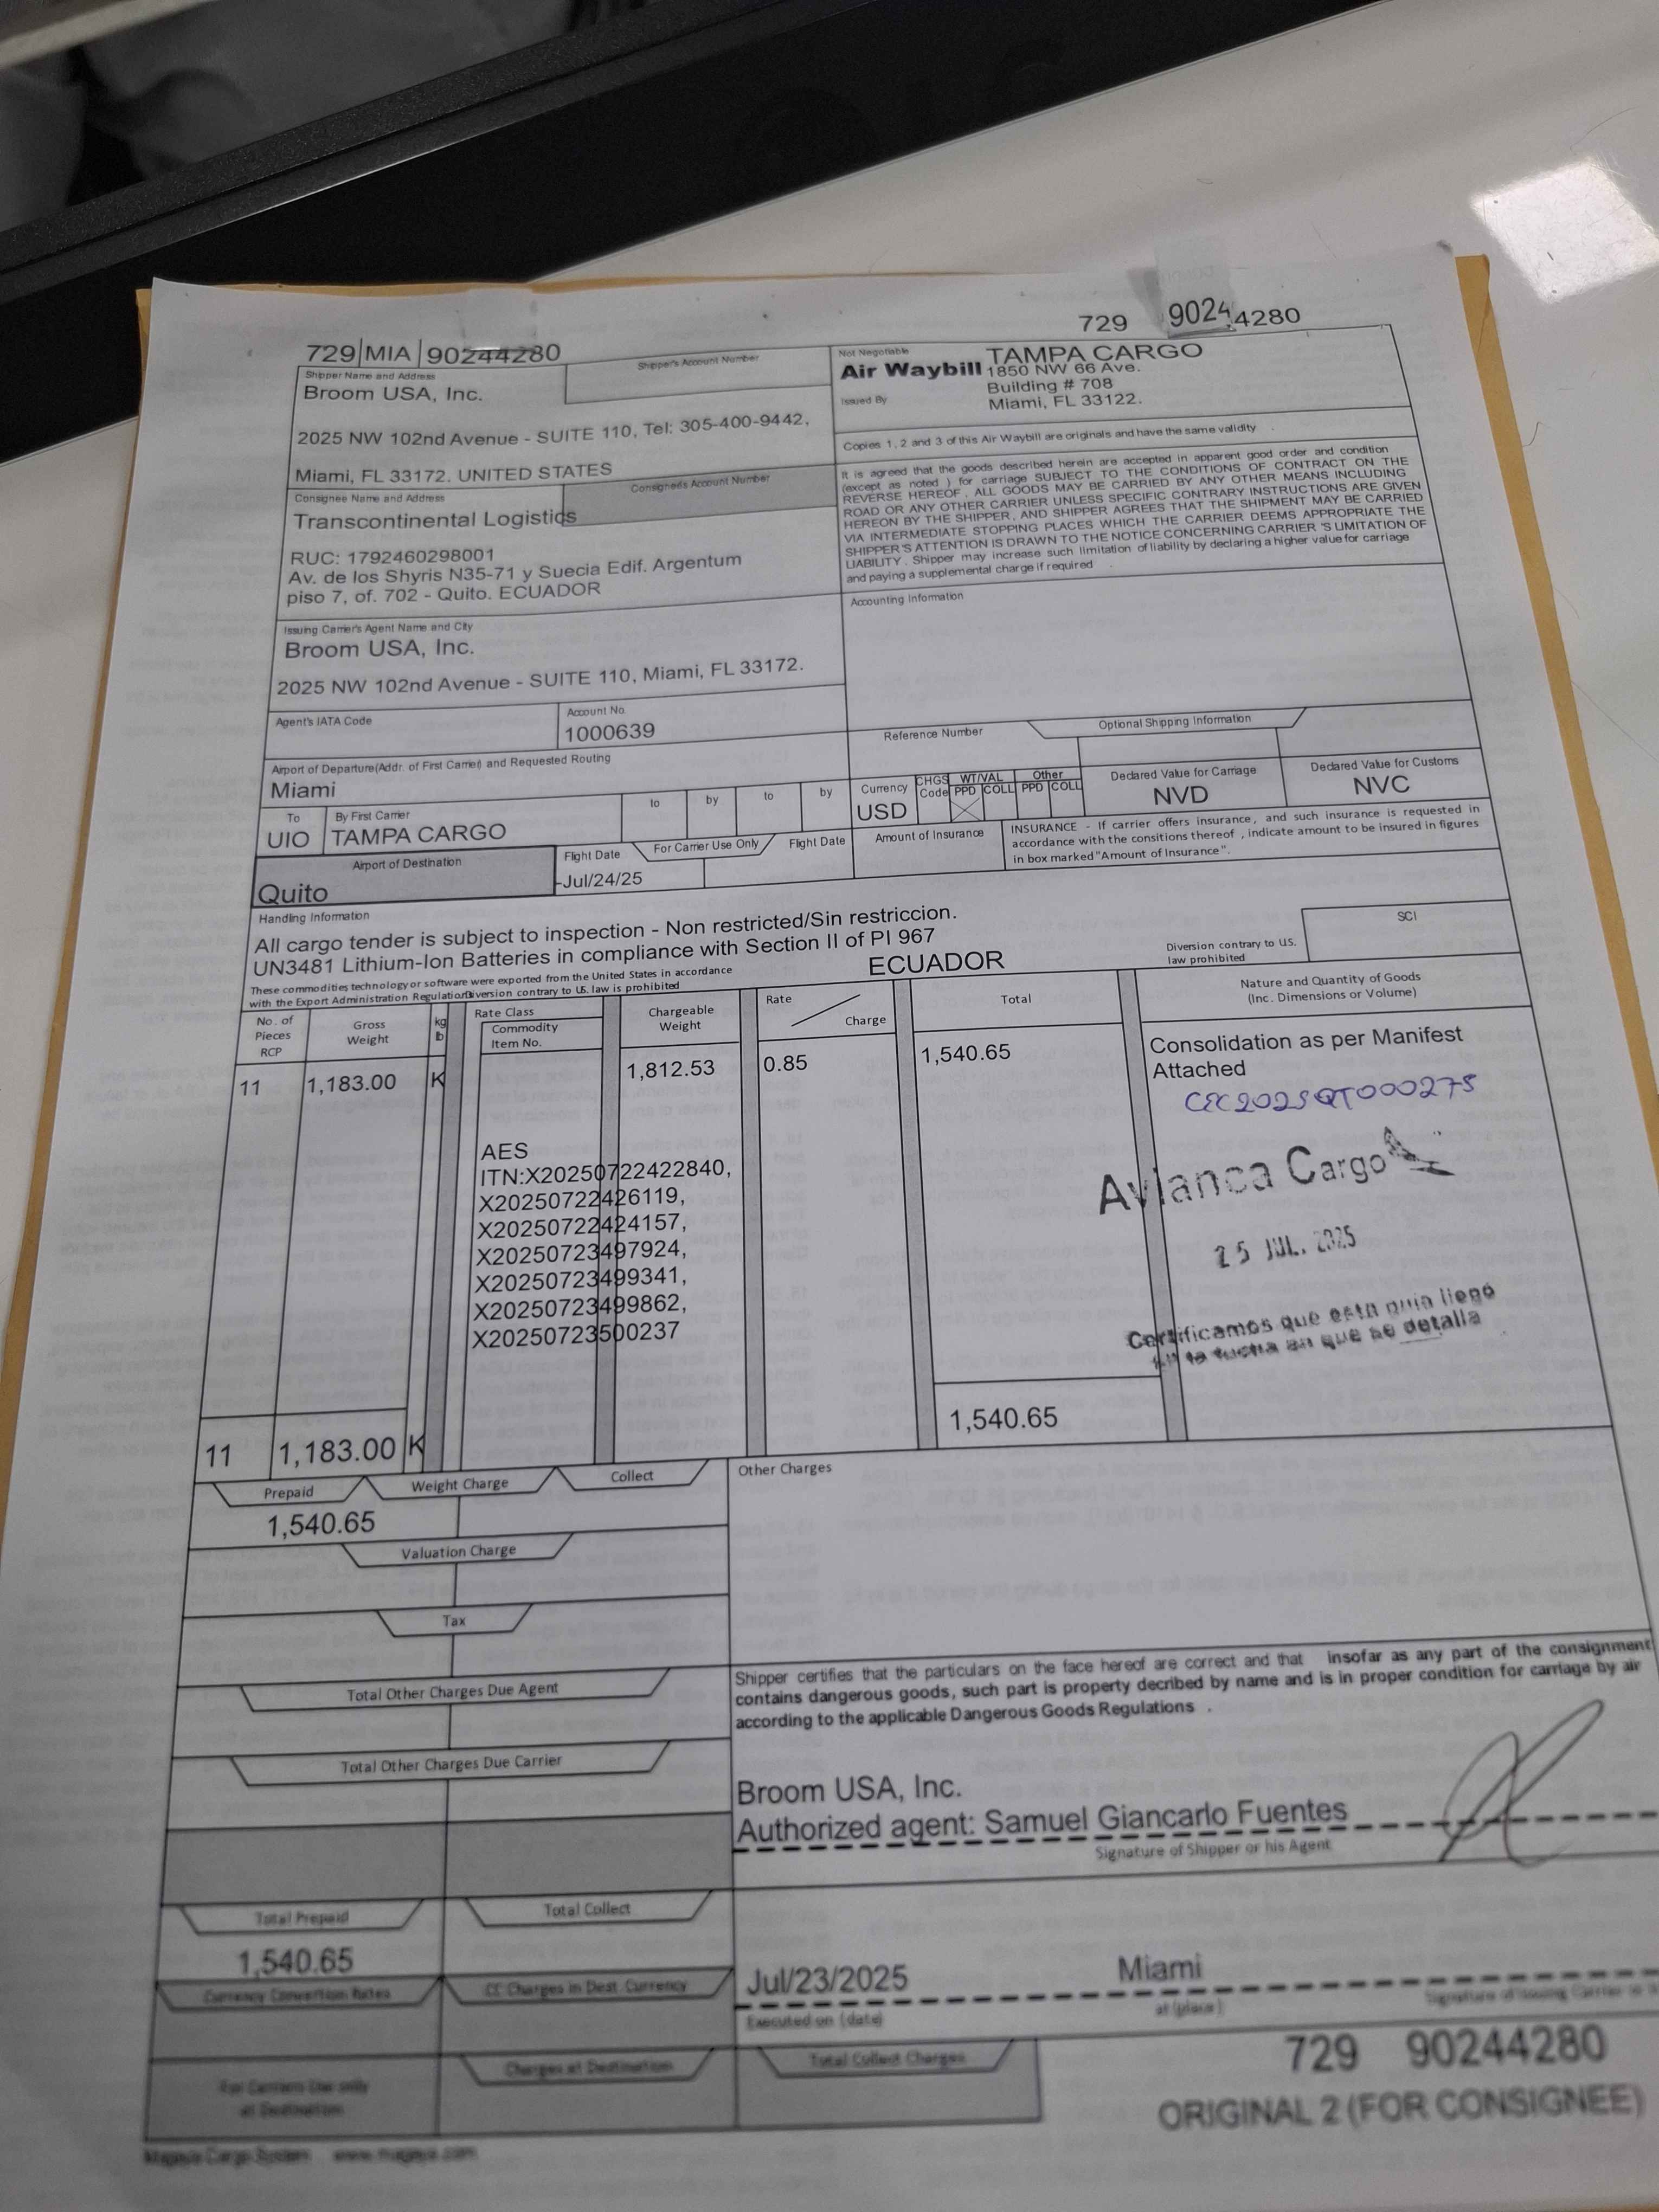 729 90244280
729 MIA 90244280
Shipper's Account Number
Shipper Name and Address
Broom USA, Inc.
2025 NW 102nd Avenue - SUITE 110, Tel: 305-400-9442,
Miami, FL 33172. UNITED STATES
Not Negotiable
Air Waybill
Issued By
TAMPA CARGO
1850 NW 66 Ave.
Building # 708
Miami, FL 33122.
Copies 1, 2 and 3 of this Air Waybill are originals and have the same validity .
Consignee Name and Address
Consigned's Account Number
Transcontinental Logistics
RUC: 1792460298001
Av. de los Shyris N35-71 y Suecia Edif. Argentum
piso 7, of. 702 - Quito. ECUADOR
It is agreed that the goods described herein are accepted in apparent good order and condition
(except as noted ) for carriage SUBJECT TO THE CONDITIONS OF CONTRACT ON THE
REVERSE HEREOF . ALL GOODS MAY BE CARRIED BY ANY OTHER MEANS INCLUDING
ROAD OR ANY OTHER CARRIER UNLESS SPECIFIC CONTRARY INSTRUCTIONS ARE GIVEN
HEREON BY THE SHIPPER, AND SHIPPER AGREES THAT THE SHIPMENT MAY BE CARRIED
VIA INTERMEDIATE STOPPING PLACES WHICH THE CARRIER DEEMS APPROPRIATE THE
SHIPPER'S ATTENTION IS DRAWN TO THE NOTICE CONCERNING CARRIER 'S LIMITATION OF
LIABILITY . Shipper may increase such limitation of liability by declaring a higher value for carriage
and paying a supplemental charge if required .
Issuing Carrier's Agent Name and City
Broom USA, Inc.
2025 NW 102nd Avenue - SUITE 110, Miami, FL 33172.
Accounting Information
Agent's IATA Code
Account No.
1000639
Airport of Departure(Addr. of First Carrier) and Requested Routing
Miami
Reference Number
Optional Shipping Information
To
UIO
By First Carrier
TAMPA CARGO
to by to by
Currency
USD
CHGS Code
WT/VAL
PPD COLL
Other
PPD COLL
Declared Value for Carriage
NVD
Declared Value for Customs
NVC
Airport of Destination
Quito
Flight Date
For Carrier Use Only
Flight Date
-Jul/24/25
Amount of Insurance
INSURANCE - If carrier offers insurance, and such insurance is requested in
accordance with the consitions thereof , indicate amount to be insured in figures
in box marked "Amount of Insurance".
Handling Information
All cargo tender is subject to inspection - Non restricted/Sin restriccion.
UN3481 Lithium-Ion Batteries in compliance with Section II of PI 967
These commodities technology or software were exported from the United States in accordance
with the Export Administration Regulation Diversion contrary to US. law is prohibited
ECUADOR
Diversion contrary to U.S.
law prohibited
SCI
No. of
Pieces
RCP
Gross
Weight
kg
lb
Rate Class
Commodity
Item No.
Chargeable
Weight
Rate
Charge
Total
Nature and Quantity of Goods
(Inc. Dimensions or Volume)
11 1,183.00 K 1,812.53 0.85 1,540.65
Consolidation as per Manifest
Attached
CEC2025QT000275
AES
ITN:X20250722422840,
X20250722426119,
X20250722424157,
X20250723497924,
X20250723499341,
X20250723499862,
X20250723500237
Avianca Cargo
25 JUL. 2025
Certificamos que esta guia llegó
en la fecha en que se detalla
11 1,183.00 K 1,540.65
Prepaid
Weight Charge
Collect
1,540.65
Other Charges
Valuation Charge
Tax
Total Other Charges Due Agent
Total Other Charges Due Carrier
Shipper certifies that the particulars on the face hereof are correct and that insofar as any part of the consignment
contains dangerous goods, such part is property decribed by name and is in proper condition for carriage by air
according to the applicable Dangerous Goods Regulations .
Broom USA, Inc.
Authorized agent: Samuel Giancarlo Fuentes
Signature of Shipper or his Agent
Total Prepaid
Total Collect
1,540.65
Currency Convertion Rates
CC Charges in Dest. Currency
Jul/23/2025
Miami
Executed on (date)
at (place)
Signature of Issuing Carrier or
For Carriers Use only
at Destination
Charges at Destination
Total Collect Charges
729 90244280
ORIGINAL 2 (FOR CONSIGNEE)
Magaya Cargo System www.magaya.com